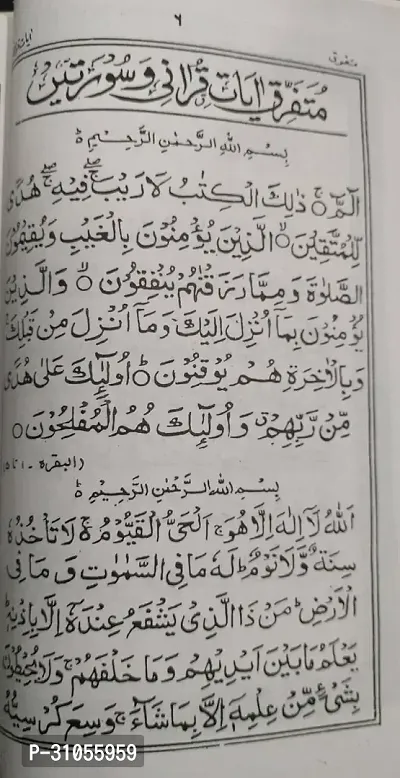 ۶
متفرق
مُتَفَرِّقْ اٰیَاتِ قُرْاٰنِیْ وَ سُوْرَتَیْں
بِسْمِ اللهِ الرَّحْمٰنِ الرَّحِيْمِ ۝
الٓمّٓ ۝ ذٰلِكَ الْكِتٰبُ لَا رَيْبَ ۛ فِيْهِ ۛ هُدًى
لِّلْمُتَّقِيْنَ ۝ الَّذِيْنَ يُؤْمِنُوْنَ بِالْغَيْبِ وَيُقِيْمُوْنَ
الصَّلٰوةَ وَمِمَّا رَزَقْنٰهُمْ يُنْفِقُوْنَ ۝ وَالَّذِيْنَ
يُؤْمِنُوْنَ بِمَآ اُنْزِلَ اِلَيْكَ وَمَآ اُنْزِلَ مِنْ قَبْلِكَ ۚ
وَبِالْاٰخِرَةِ هُمْ يُوْقِنُوْنَ ۝ اُولٰٓئِكَ عَلٰى هُدًى
مِّنْ رَّبِّهِمْ ۗ وَاُولٰٓئِكَ هُمُ الْمُفْلِحُوْنَ ۝
(البقره - ۱ تا ۵)
بِسْمِ اللهِ الرَّحْمٰنِ الرَّحِيْمِ ۝
اَللهُ لَآ اِلٰهَ اِلَّا هُوَ ۚ اَلْحَيُّ الْقَيُّوْمُ ۚ لَا تَأْخُذُهٗ
سِنَةٌ وَّلَا نَوْمٌ ؕ لَهٗ مَا فِي السَّمٰوٰتِ وَمَا فِي
الْاَرْضِ ؕ مَنْ ذَا الَّذِيْ يَشْفَعُ عِنْدَهٗٓ اِلَّا بِاِذْنِهٖ ؕ
يَعْلَمُ مَا بَيْنَ اَيْدِيْهِمْ وَمَا خَلْفَهُمْ ۚ وَلَا يُحِيْطُوْنَ
بِشَيْءٍ مِّنْ عِلْمِهٖٓ اِلَّا بِمَا شَآءَ ۚ وَسِعَ كُرْسِيُّهُ
P-31055959